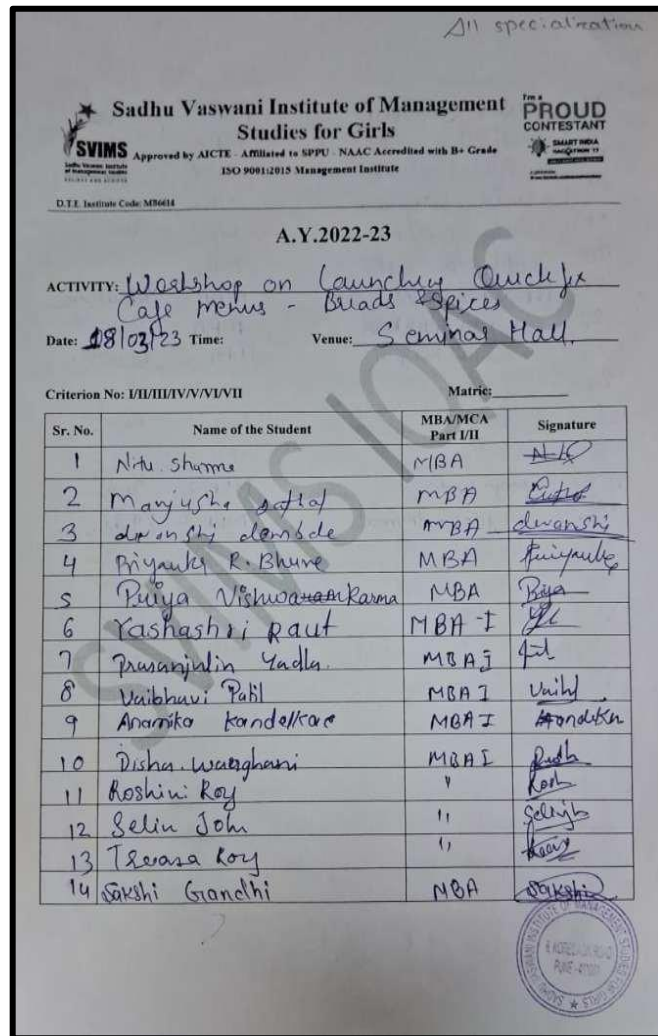 All specialization
Sadhu Vaswani Institute of Management
Studies for Girls
SVIMS
Approved by AICTE - Affiliated to SPPU - NAAC Accredited with B+ Grade
ISO 9001:2015 Management Institute
I'm a
PROUD
CONTESTANT
SMART INDIA
D.T.E. Institute Code: MB6614
A.Y.2022-23
ACTIVITY: Workshop on Launching Quickfix
Cafe menus - Breads & Spices
Date: 18/03/23 Time: Venue: Seminar Hall.
Criterion No: I/II/III/IV/V/VI/VII Matric:
Sr. No. Name of the Student MBA/MCA Part I/II Signature
1 Nitu Sharma MBA
2 Manjusha MBA
3 devanshi dembde MBA devanshi
4 Priyanka R. Bhure MBA Priyanka
5 Puiya Vishwakarma MBA
6 Yashashri Raut MBA-I
7 Prasanjulin Yadla. MBA I
8 Vaibhavi Patil MBA I
9 Anamika Kandelkar MBA I
10 Disha. MBA I
11 Roshini Roy "
12 Selin John "
13 Treasa Roy "
14 Sakshi Gandhi MBA Sakshi
SVIMS IQAC
SADHU VASWANI INSTITUTE OF MANAGEMENT STUDIES FOR GIRLS
6, KOREGAON ROAD
PUNE - 411001